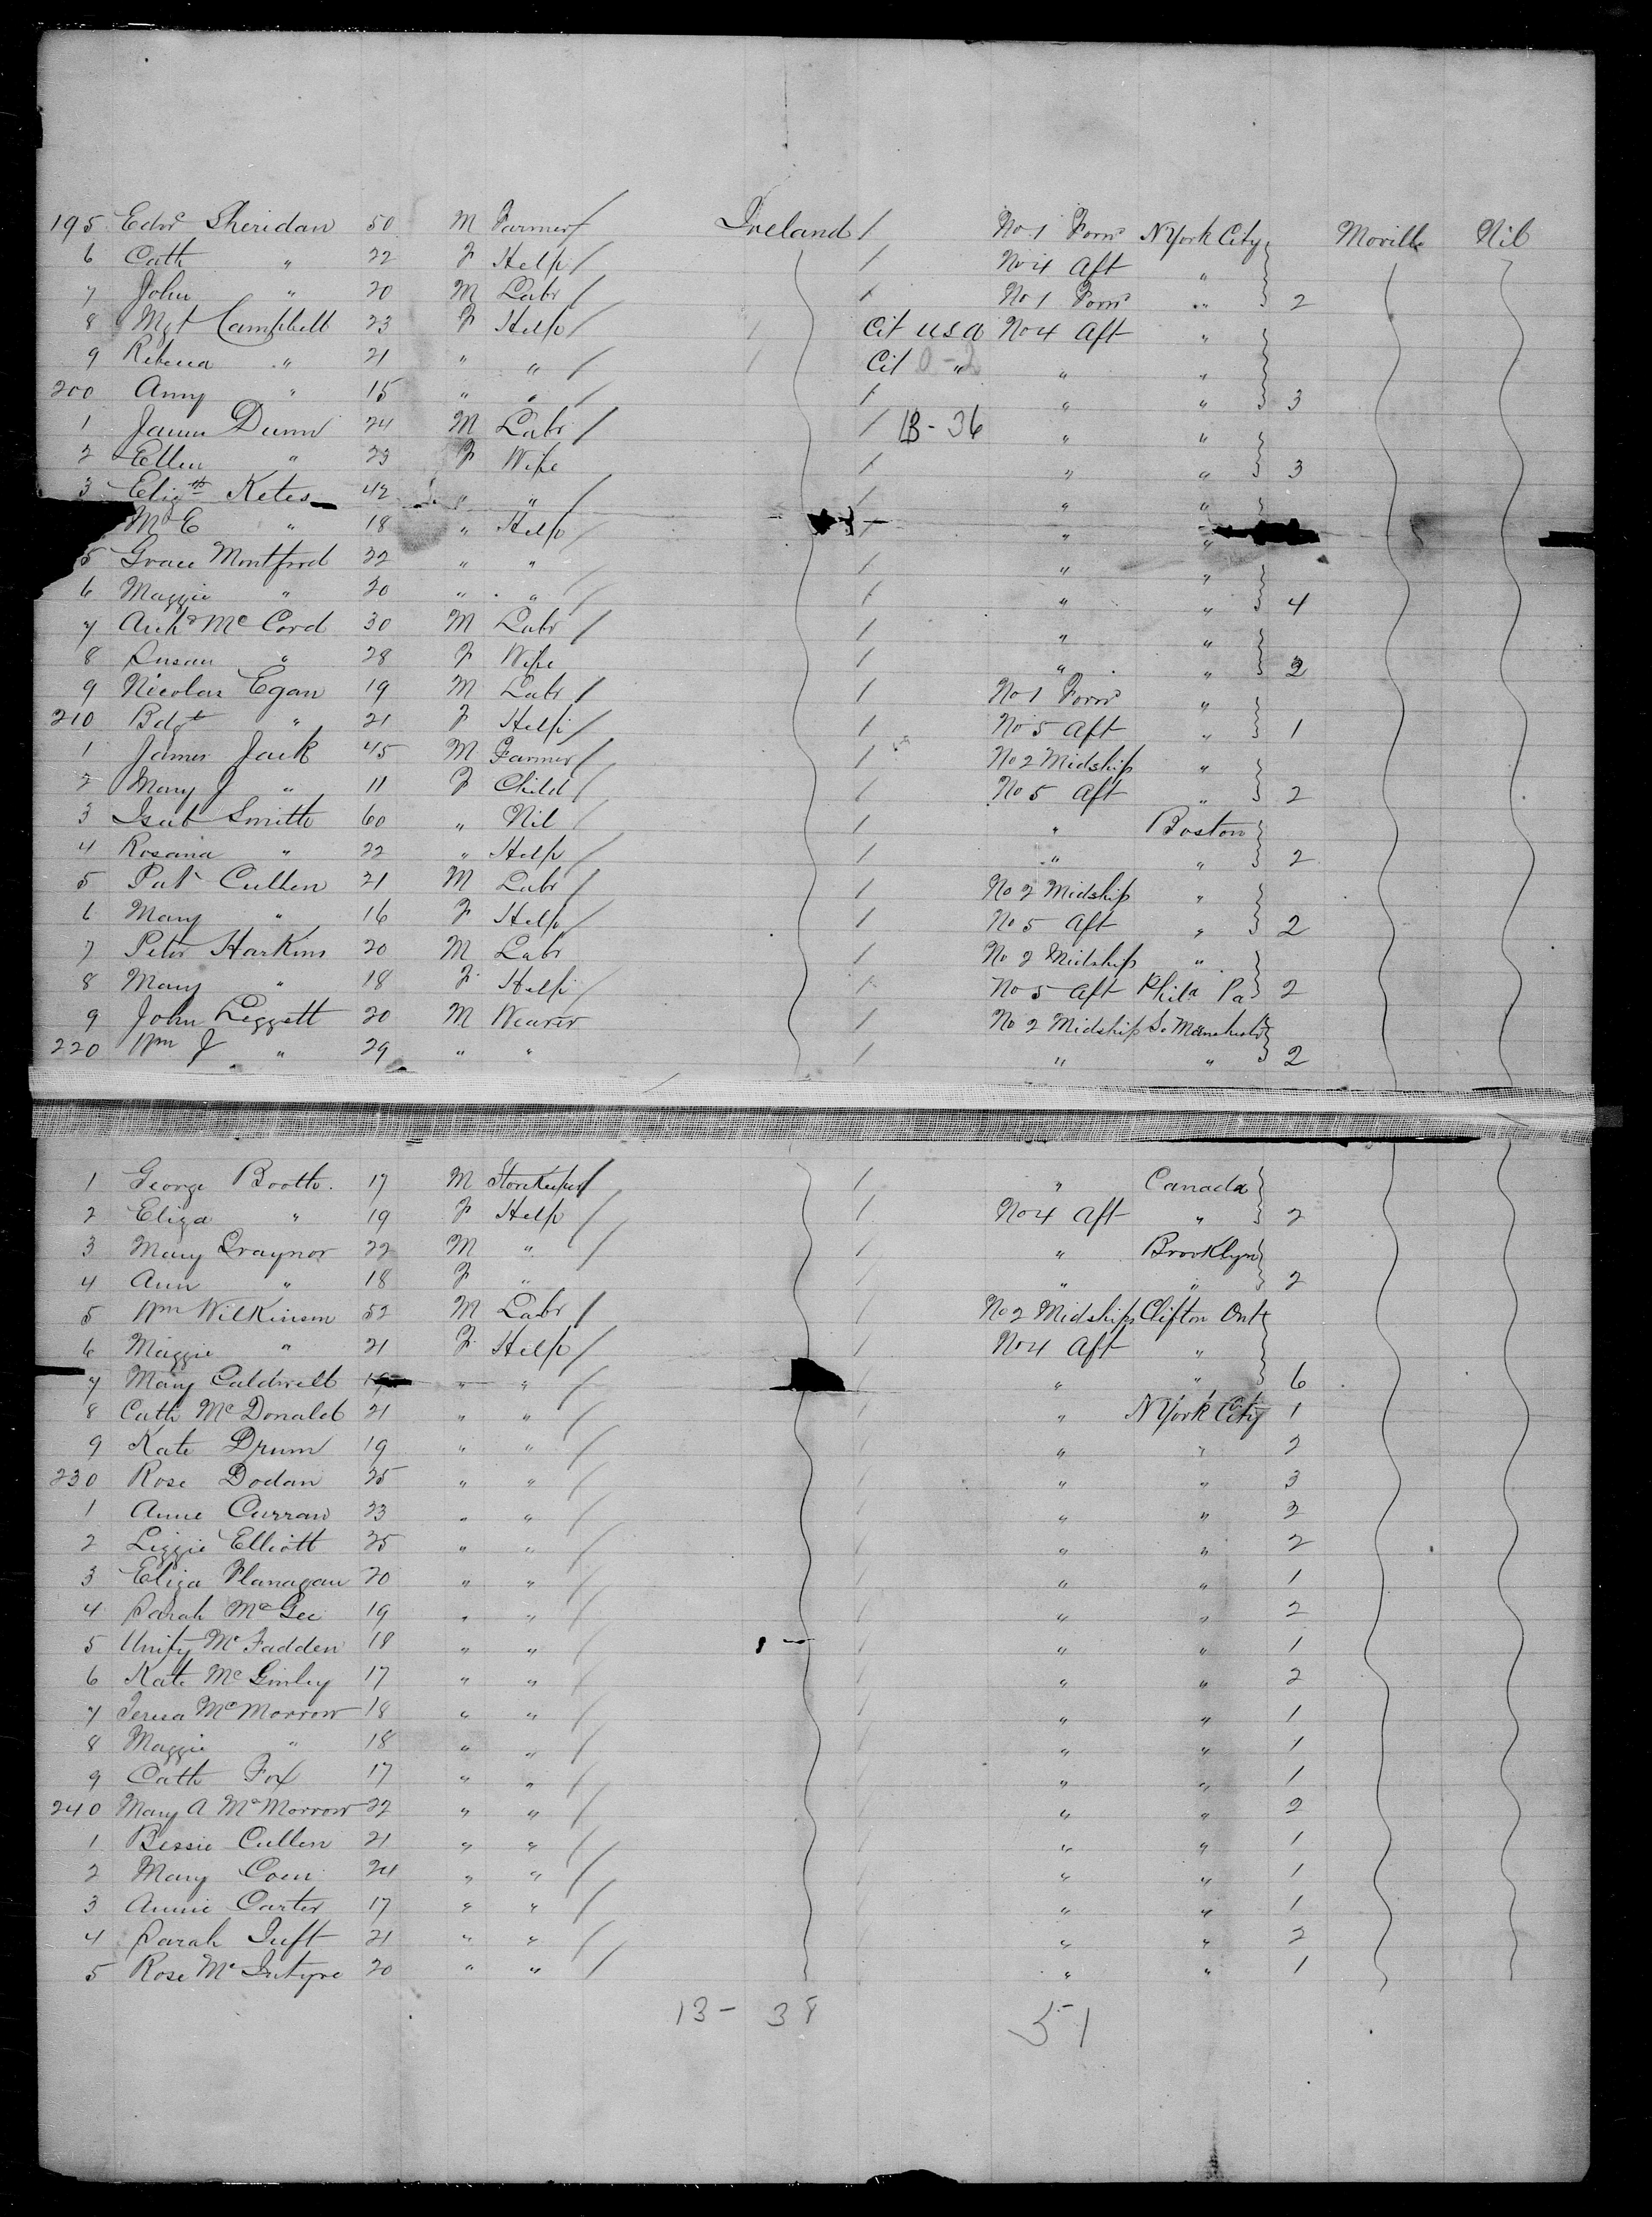 195 Edwd Sheridan 50 M Farmer Ireland / No 1 Forwd N York City Moville Nil
6 Cath " 22 F Help / No 4 Aft "
7 John " 20 M Labr / No 1 Forwd " 2
8 Mgt Campbell 23 F Help Cit USA No 4 Aft "
9 Rebecca " 21 " " Cit " " "
200 Anny " 15 " " / " " 3
1 James Dunn 24 M Labr / 13-36 " "
2 Ellen " 23 F Wife / " " 3
3 Elizth Ketes 42 " " / " "
M E " 18 " Help / " "
5 Grace Montford 22 " " / " "
6 Maggie " 20 " " / " " 4
7 Archd Mc Cord 30 M Labr / " "
8 Susan " 28 F Wife / " " 2
9 Nicolas Egan 19 M Labr / No 1 Forwd "
210 Bdgt " 21 F Help / No 5 Aft " 1
1 James Jack 45 M Farmer / No 2 Midship "
2 Mary J " 11 F Child / No 5 Aft " 2
3 Isab Smith 60 " Nil / " Boston
4 Rosana " 22 " Help / " " 2
5 Patk Cullen 21 M Labr / No 2 Midship "
6 Mary " 16 F Help / No 5 Aft " 2
7 Peter Harkins 20 M Labr / No 2 Midship "
8 Mary " 18 F Help / No 5 Aft Phila Pa 2
9 John Leggett 20 M Weaver / No 2 Midship So Manchester
220 Wm J " 29 " " / " " 2
1 George Booth 17 M Storekeeper / " Canada
2 Eliza " 19 F Help / No 4 Aft " 2
3 Mary Graynor 22 M " / " Brooklyn
4 Ann " 18 F " / " " 2
5 Wm Wilkinson 52 M Labr / No 2 Midship Clifton Ont
6 Maggie " 21 F Help / No 4 Aft "
7 Mary Caldwell " " " " 6
8 Cath McDonald 21 " " / " N York City 1
9 Kate Drum 19 " " / " " 2
230 Rose Dodan 25 " " / " " 3
1 Anne Curran 23 " " / " " 2
2 Lizzie Elliott 25 " " / " " 2
3 Eliza Flanagan 20 " " / " " 1
4 Sarah McGee 19 " " / " " 2
5 Unity McFadden 18 " " / " " 1
6 Kate McGinley 17 " " / " " 2
7 Teresa McMorrow 18 " " / " " 1
8 Maggie " 18 " " / " " 1
9 Cath Fox 17 " " / " " 1
240 Mary A McMorrow 22 " " / " " 2
1 Bessie Cullen 21 " " / " " 1
2 Mary Coen 24 " " / " " 1
3 Annie Carter 17 " " / " " 1
4 Sarah Tuft 21 " " / " " 2
5 Rose McIntyre 20 " " / " " 1
13 - 38 51